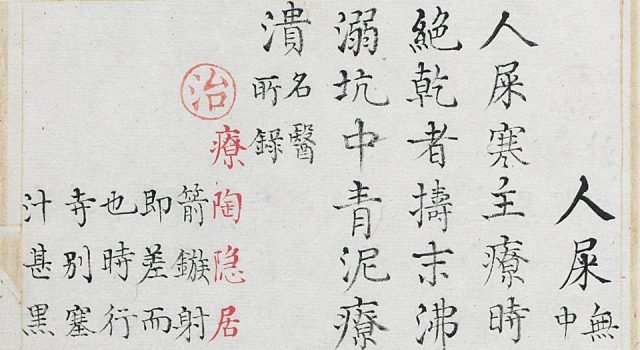 人屎無
中
人屎寒主療時
絕乾者擣末沸
溺坑中青泥療
潰名醫
所錄
治
療陶隐居
箭鏃射
即差而
也時行
寺別塞
汁甚黑